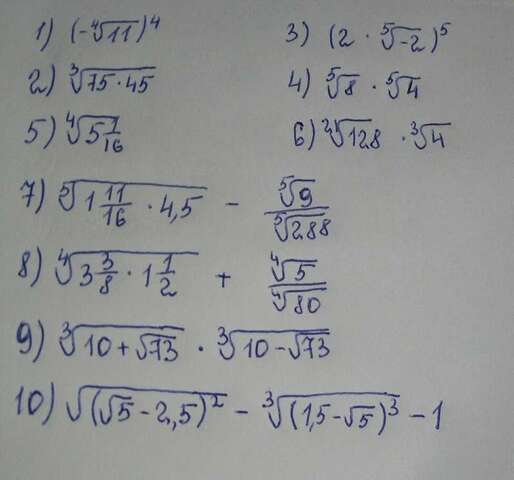 1) (-⁴√11)⁴ 3) (2 · ⁵√-2)⁵
2) ³√(75·45) 4) ⁵√8 · ⁵√4
5) ⁴√(5 1/16) 6) ³√128 · ³√4
7) ⁵√(1 11/16 · 4,5) - ⁵√9/⁵√288
8) ⁴√(3 3/8 · 1 1/2) + ⁴√5/⁴√80
9) ³√(10+√73) · ³√(10-√73)
10) √(√5-2,5)² - ³√(1,5-√5)³ - 1